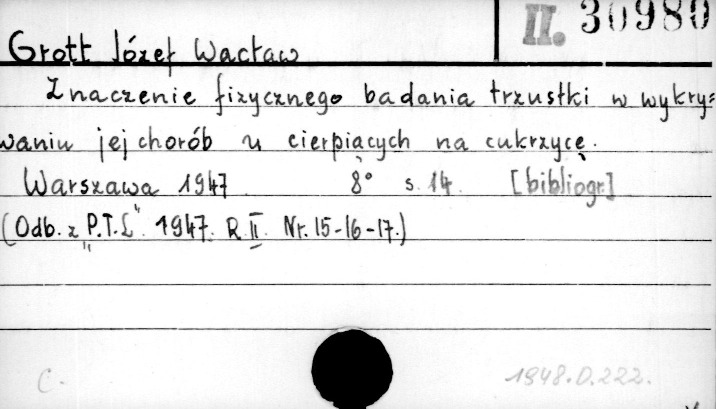 II. 30980
Grott Józef Wacław
Znaczenie fizycznego badania trzustki w wykry=
waniu jej chorób u cierpiących na cukrzycę.
Warszawa 1947 8° s. 14. [bibliogr.]
(Odb. z „P.T.L". 1947. R. II. Nr. 15-16-17.)
C. 1948.D.222.